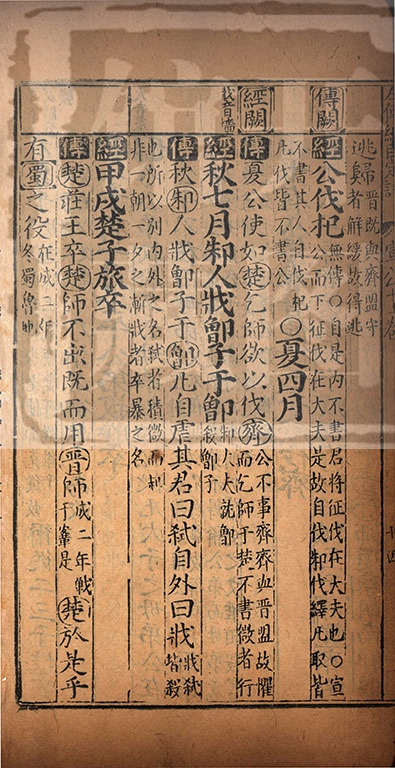 逃歸晉既與齊盟守者解緩故得逃
傳闕
經公伐杞無傳○自是内不書君將征伐在大夫也○宣公而下征伐在大夫是故自伐邾伐繹凡取皆
不書其人自伐杞凡伐皆不書公○夏四月
經闕
傳夏公使如楚乞師欲以伐齊公不事齊齊與晉盟故懼而乞師于楚不書微者行
戕音墻
經秋七月邾人戕鄫子于鄫邾大夫就鄫殺鄫子
傳秋邾人戕鄫子于鄫凡自虐其君曰弒自外曰戕戕弒皆殺
也所以别内外之名弒者積微而起非一朝一夕之漸戕者卒暴之名
經甲戌楚子旅卒
傳楚莊王卒楚師不出既而用晉師成二年戰于鞌是楚於是乎
有蜀之役在成二年冬蜀魯地